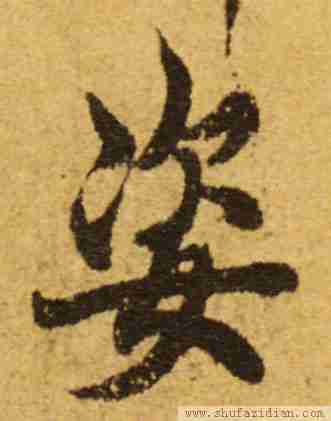 姿
www.shufazidian.com